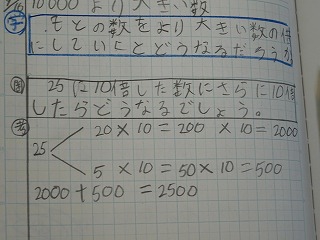 10000より大きい数
㋕ もとの数をより大きい数の倍
にしていくとどうなるだろうか
25に10倍した数にさらに10倍
したらどうなるでしょう。
20×10=200 ×10=2000
25
5 ×10=50×10=500
2000+500 =2500